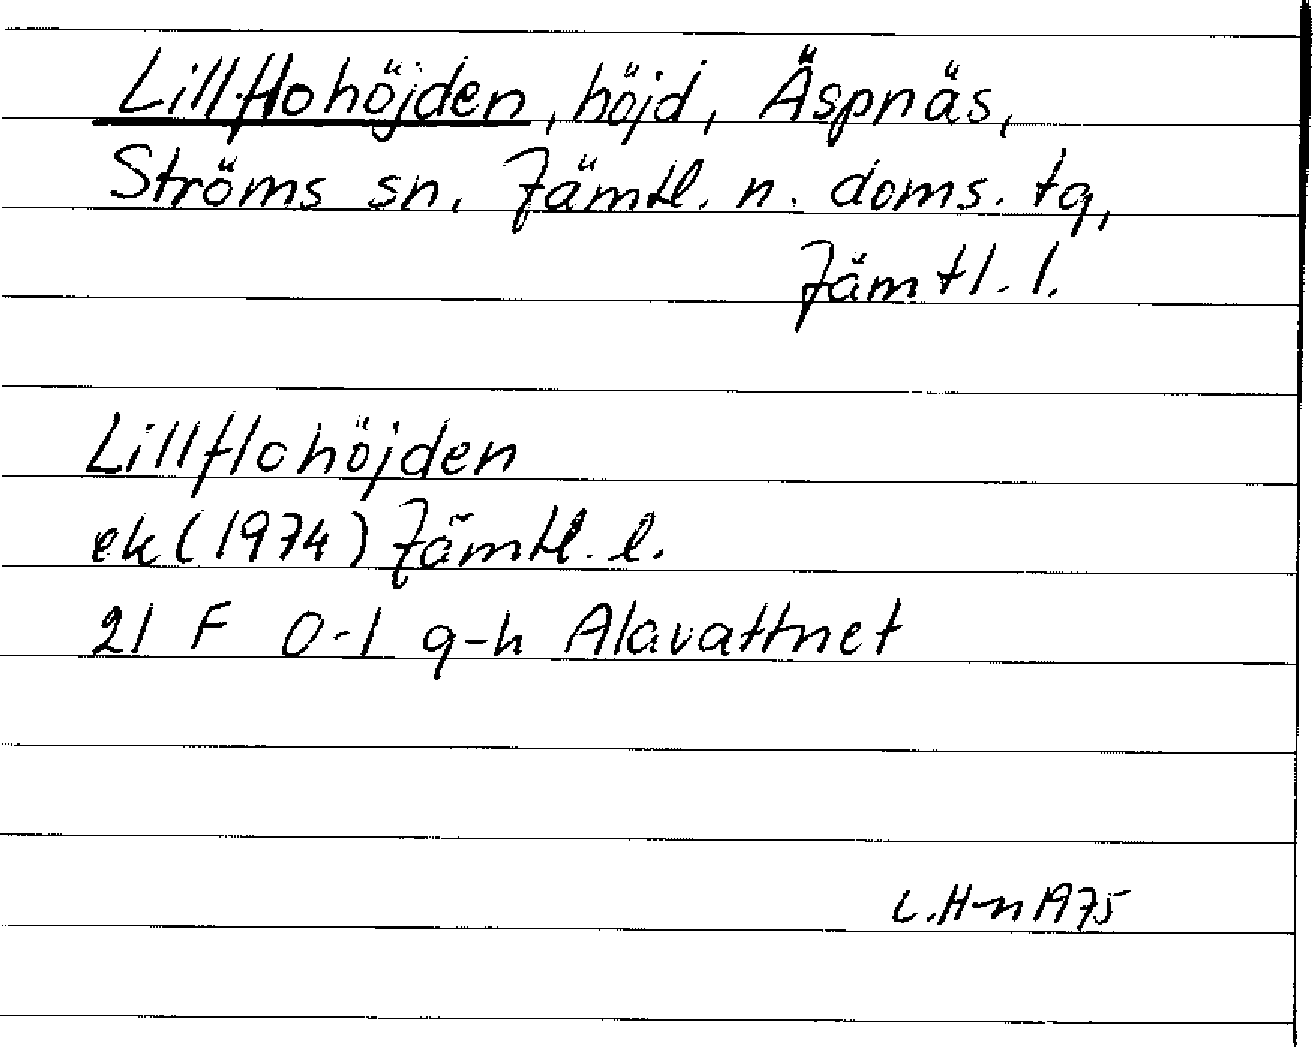 Lillflohöjden, höjd, Äspnäs,
Ströms sn, Jämtl. n. doms. tg,
Jämtl. l.
Lillflohöjden
ek (1974) Jämtl. l.
21 F 0-1 g-h Alavattnet
L.H-n 1975